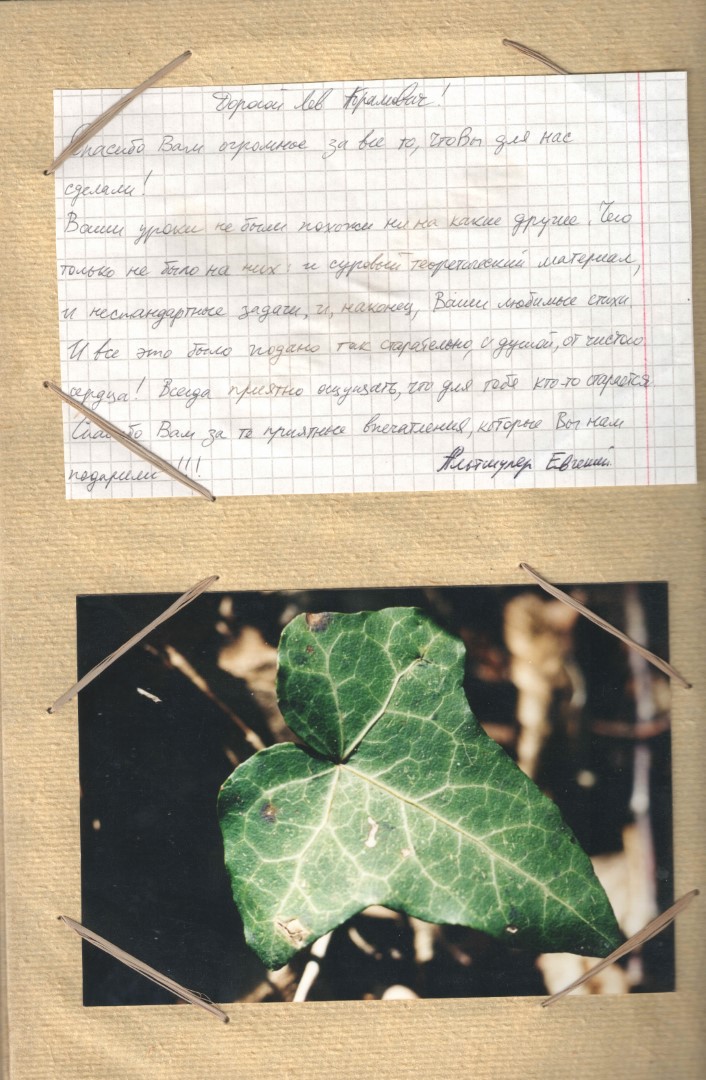 Дорогой Лев Абрамович!
Спасибо Вам огромное за все то, что Вы для нас
сделали!
Ваши уроки не были похожи ни на какие другие. Чего
только не было на них: и суровый теоретический материал,
и нестандартные задачи, и, наконец, Ваши любимые стихи.
И все это было подано так старательно, с душой, от чистого
сердца! Всегда приятно ощущать, что для тебя кто-то старается.
Спасибо Вам за те приятные впечатления, которые Вы нам
подарили!!!
Альтшулер Евгений.